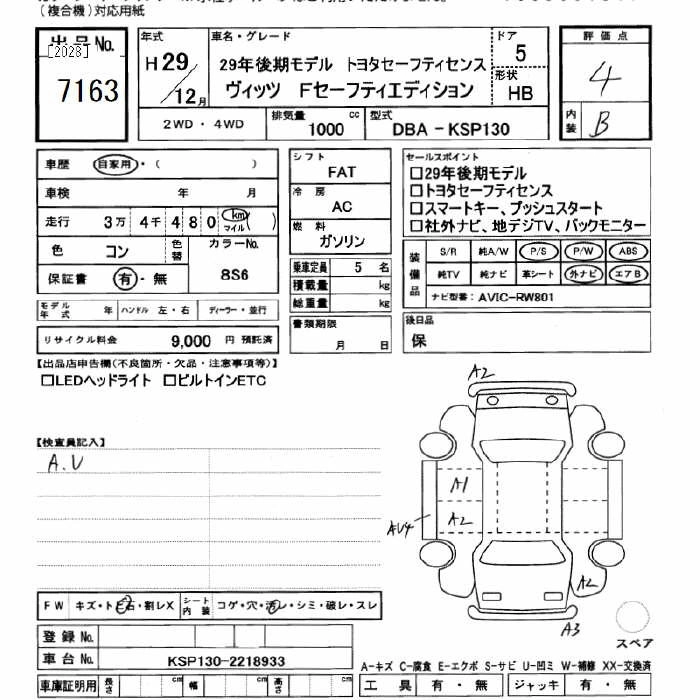 (複合機)対応用紙
出品No.
[2028]
7163
年式
H29
12月
車名・グレード
29年後期モデル トヨタセーフティセンス
ヴィッツ Fセーフティエディション
ドア
5
形状
HB
2WD・4WD
排気量
1000 cc
型式
DBA-KSP130
評価点
4
内装
B
車歴 自家用・( )
車検 年 月
走行 3万4千480 km マイル( )
色 コン 色替
カラーNo.
8S6
保証書 有・無
モデル年式 年 ハンドル 左・右 ディーラー・並行
リサイクル料金 9,000 円 預託済
シフト
FAT
冷房
AC
燃料
ガソリン
乗車定員 5 名
積載量 kg
総重量 kg
書類期限
月 日
セールスポイント
□29年後期モデル
□トヨタセーフティセンス
□スマートキー、プッシュスタート
□社外ナビ、地デジTV、バックモニター
装備品
S/R 純A/W P/S P/W ABS
純TV 純ナビ 革シート 外ナビ エアB
ナビ型番: AVIC-RW801
後日品
保
【出品店申告欄(不良箇所・欠品・注意事項等)】
□LEDヘッドライト □ビルトインETC
【検査員記入】
A.U
A2
A1
A2
AU4
A2
A3
スペア
FW キズ・トビ石・割レX
シート内装 コゲ・穴・汚レ・シミ・破レ・スレ
登録No.
車台No. KSP130-2218933
車庫証明用 長さ cm 幅 cm 高さ cm
A-キズ C-腐食 E-エクボ S-サビ U-凹ミ W-補修 XX-交換済
工具 有・無 ジャッキ 有・無